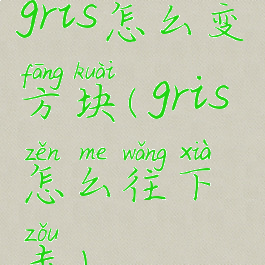 gris怎么变
fāng kuài
方块(gris
zěn me wǎng xià
怎么往下
zǒu
走)